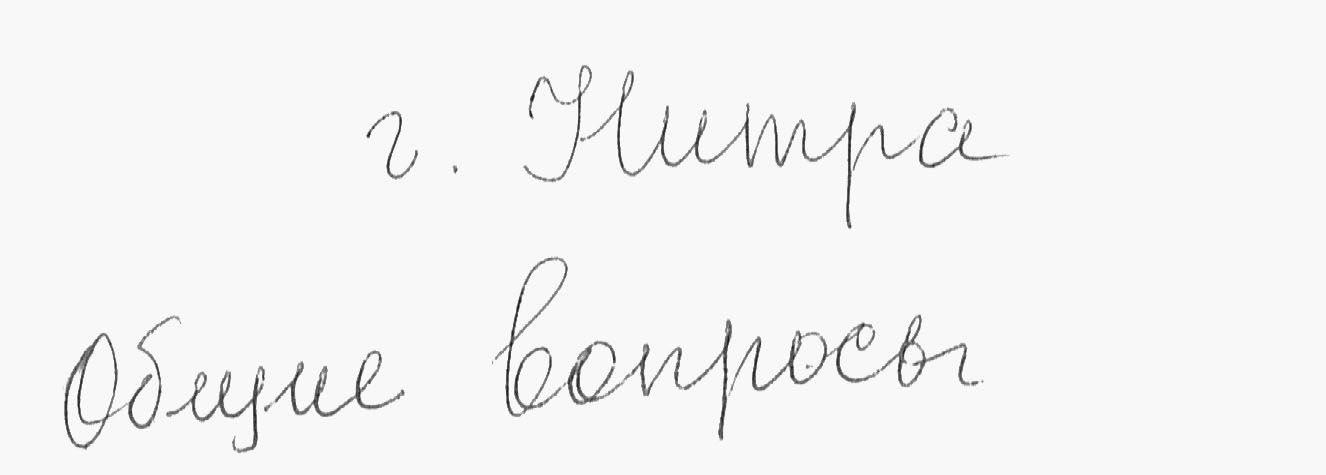 г. Нитра
Общие вопросы